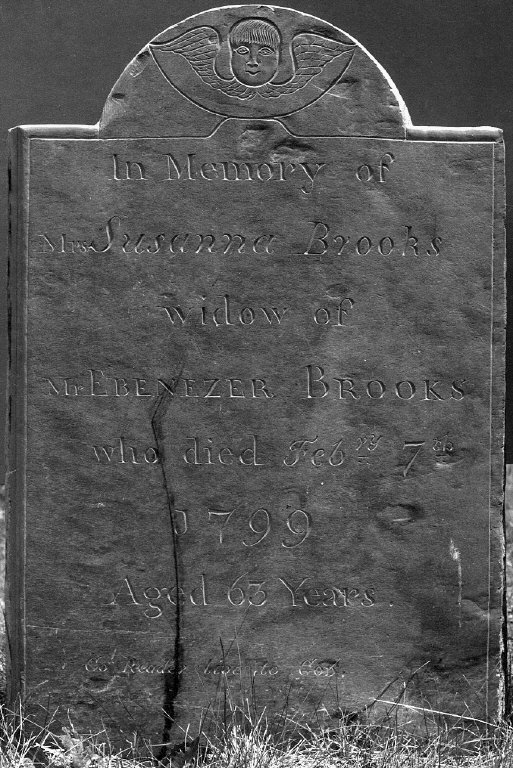 In Memory of
Mrs Susanna Brooks
widow of
Mr EBENEZER BROOKS
who died Feb ry 7 th
1799
Aged 63 Years.
Go Reader live to GOD.